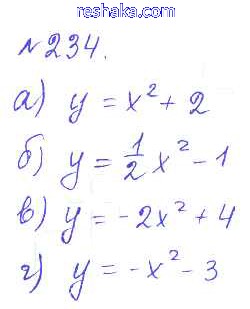 ©reshak.com
reshaka.com
№234.
а) y = x² + 2
б) y = 1/2 x² - 1
в) y = -2x² + 4
г) y = -x² - 3